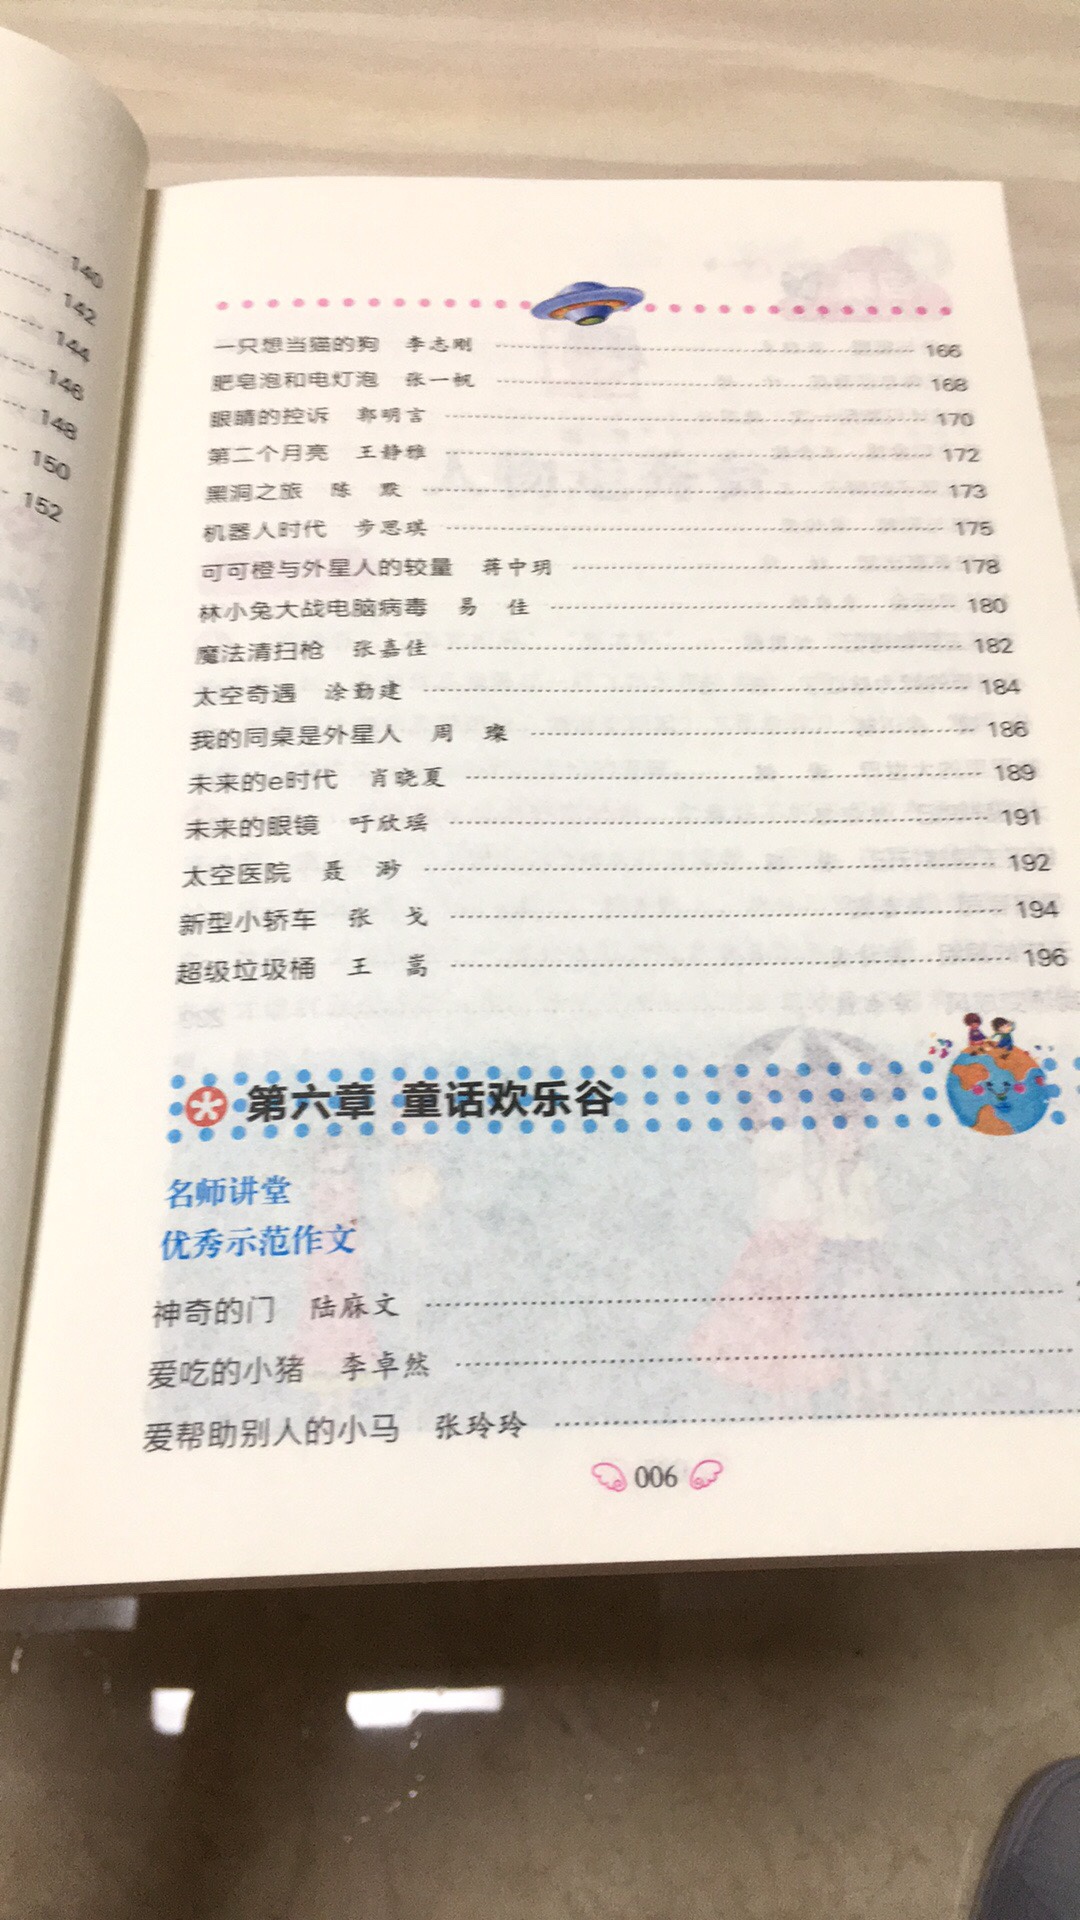 140
142
144
146
148
150
152
一只想当猫的狗 李志刚 166
肥皂泡和电灯泡 张一帆 168
眼睛的控诉 郭明言 170
第二个月亮 王静雅 172
黑洞之旅 陈 默 173
机器人时代 步思琪 175
可可橙与外星人的较量 蒋中玥 178
林小兔大战电脑病毒 易 佳 180
魔法清扫枪 张嘉佳 182
太空奇遇 涂勤建 184
我的同桌是外星人 周 璨 186
未来的e时代 肖晓夏 189
未来的眼镜 吁欣瑶 191
太空医院 聂 渺 192
新型小轿车 张 戈 194
超级垃圾桶 王 嵩 196
第六章 童话欢乐谷
名师讲堂
优秀示范作文
神奇的门 陆庥文
爱吃的小猪 李卓然
爱帮助别人的小马 张玲玲
006